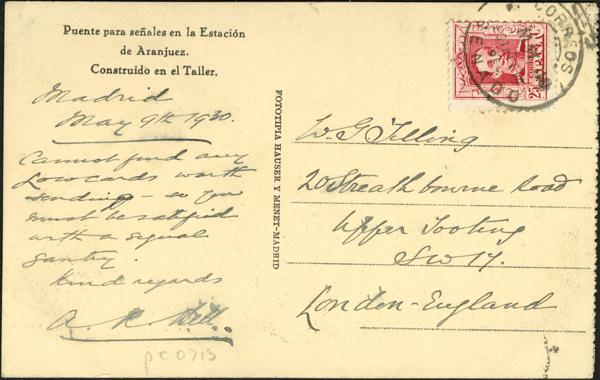 Puente para señales en la Estación
de Aranjuez.
Construido en el Taller.
Madrid
May 9th 1930.
Cannot find any
Loco cards worth
sending - so you
must be satisfied
with a signal
gantry.
Kind regards
A. R. Bell.
pc 0713
FOTOTIPIA HAUSER Y MENET-MADRID
CORREOS
25
W. G. Tilling
20 Streathbourne Road
Upper Tooting
SW 17.
London - England